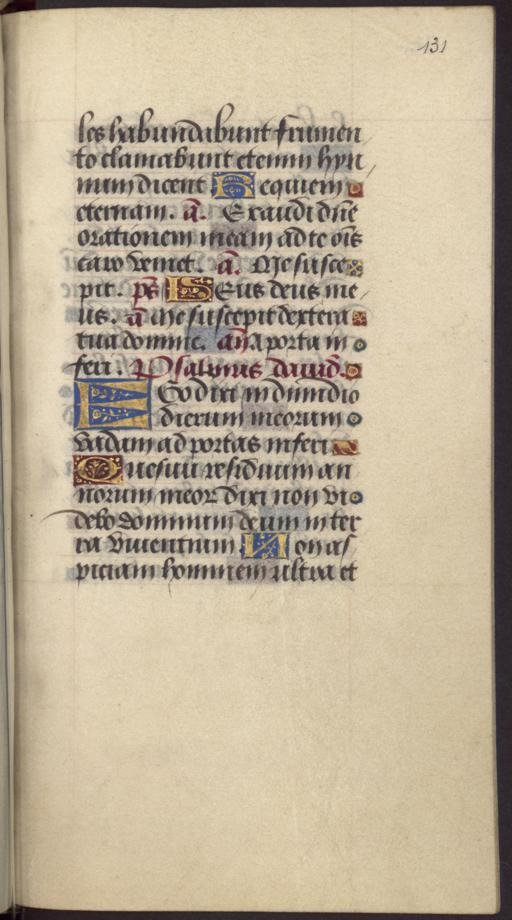 131
les habundabunt frumen
to clamabunt etenim hym
num dicent Requiem
eternam. a. Exaudi dñe
orationem meam ad te oīs
caro veniet. a. Me susce
pit. ps DEus deus me
us. a me suscepit dextera
tua domine. añ A porta in
feri. Psalmus david.
EGo dixi in dimidio
dierum meorum
vadam ad portas inferi
Quesivi residuum an
norum meor dixi non vi
debo dominum deum in ter
ra viventium Non as
piciam hominem ultra et